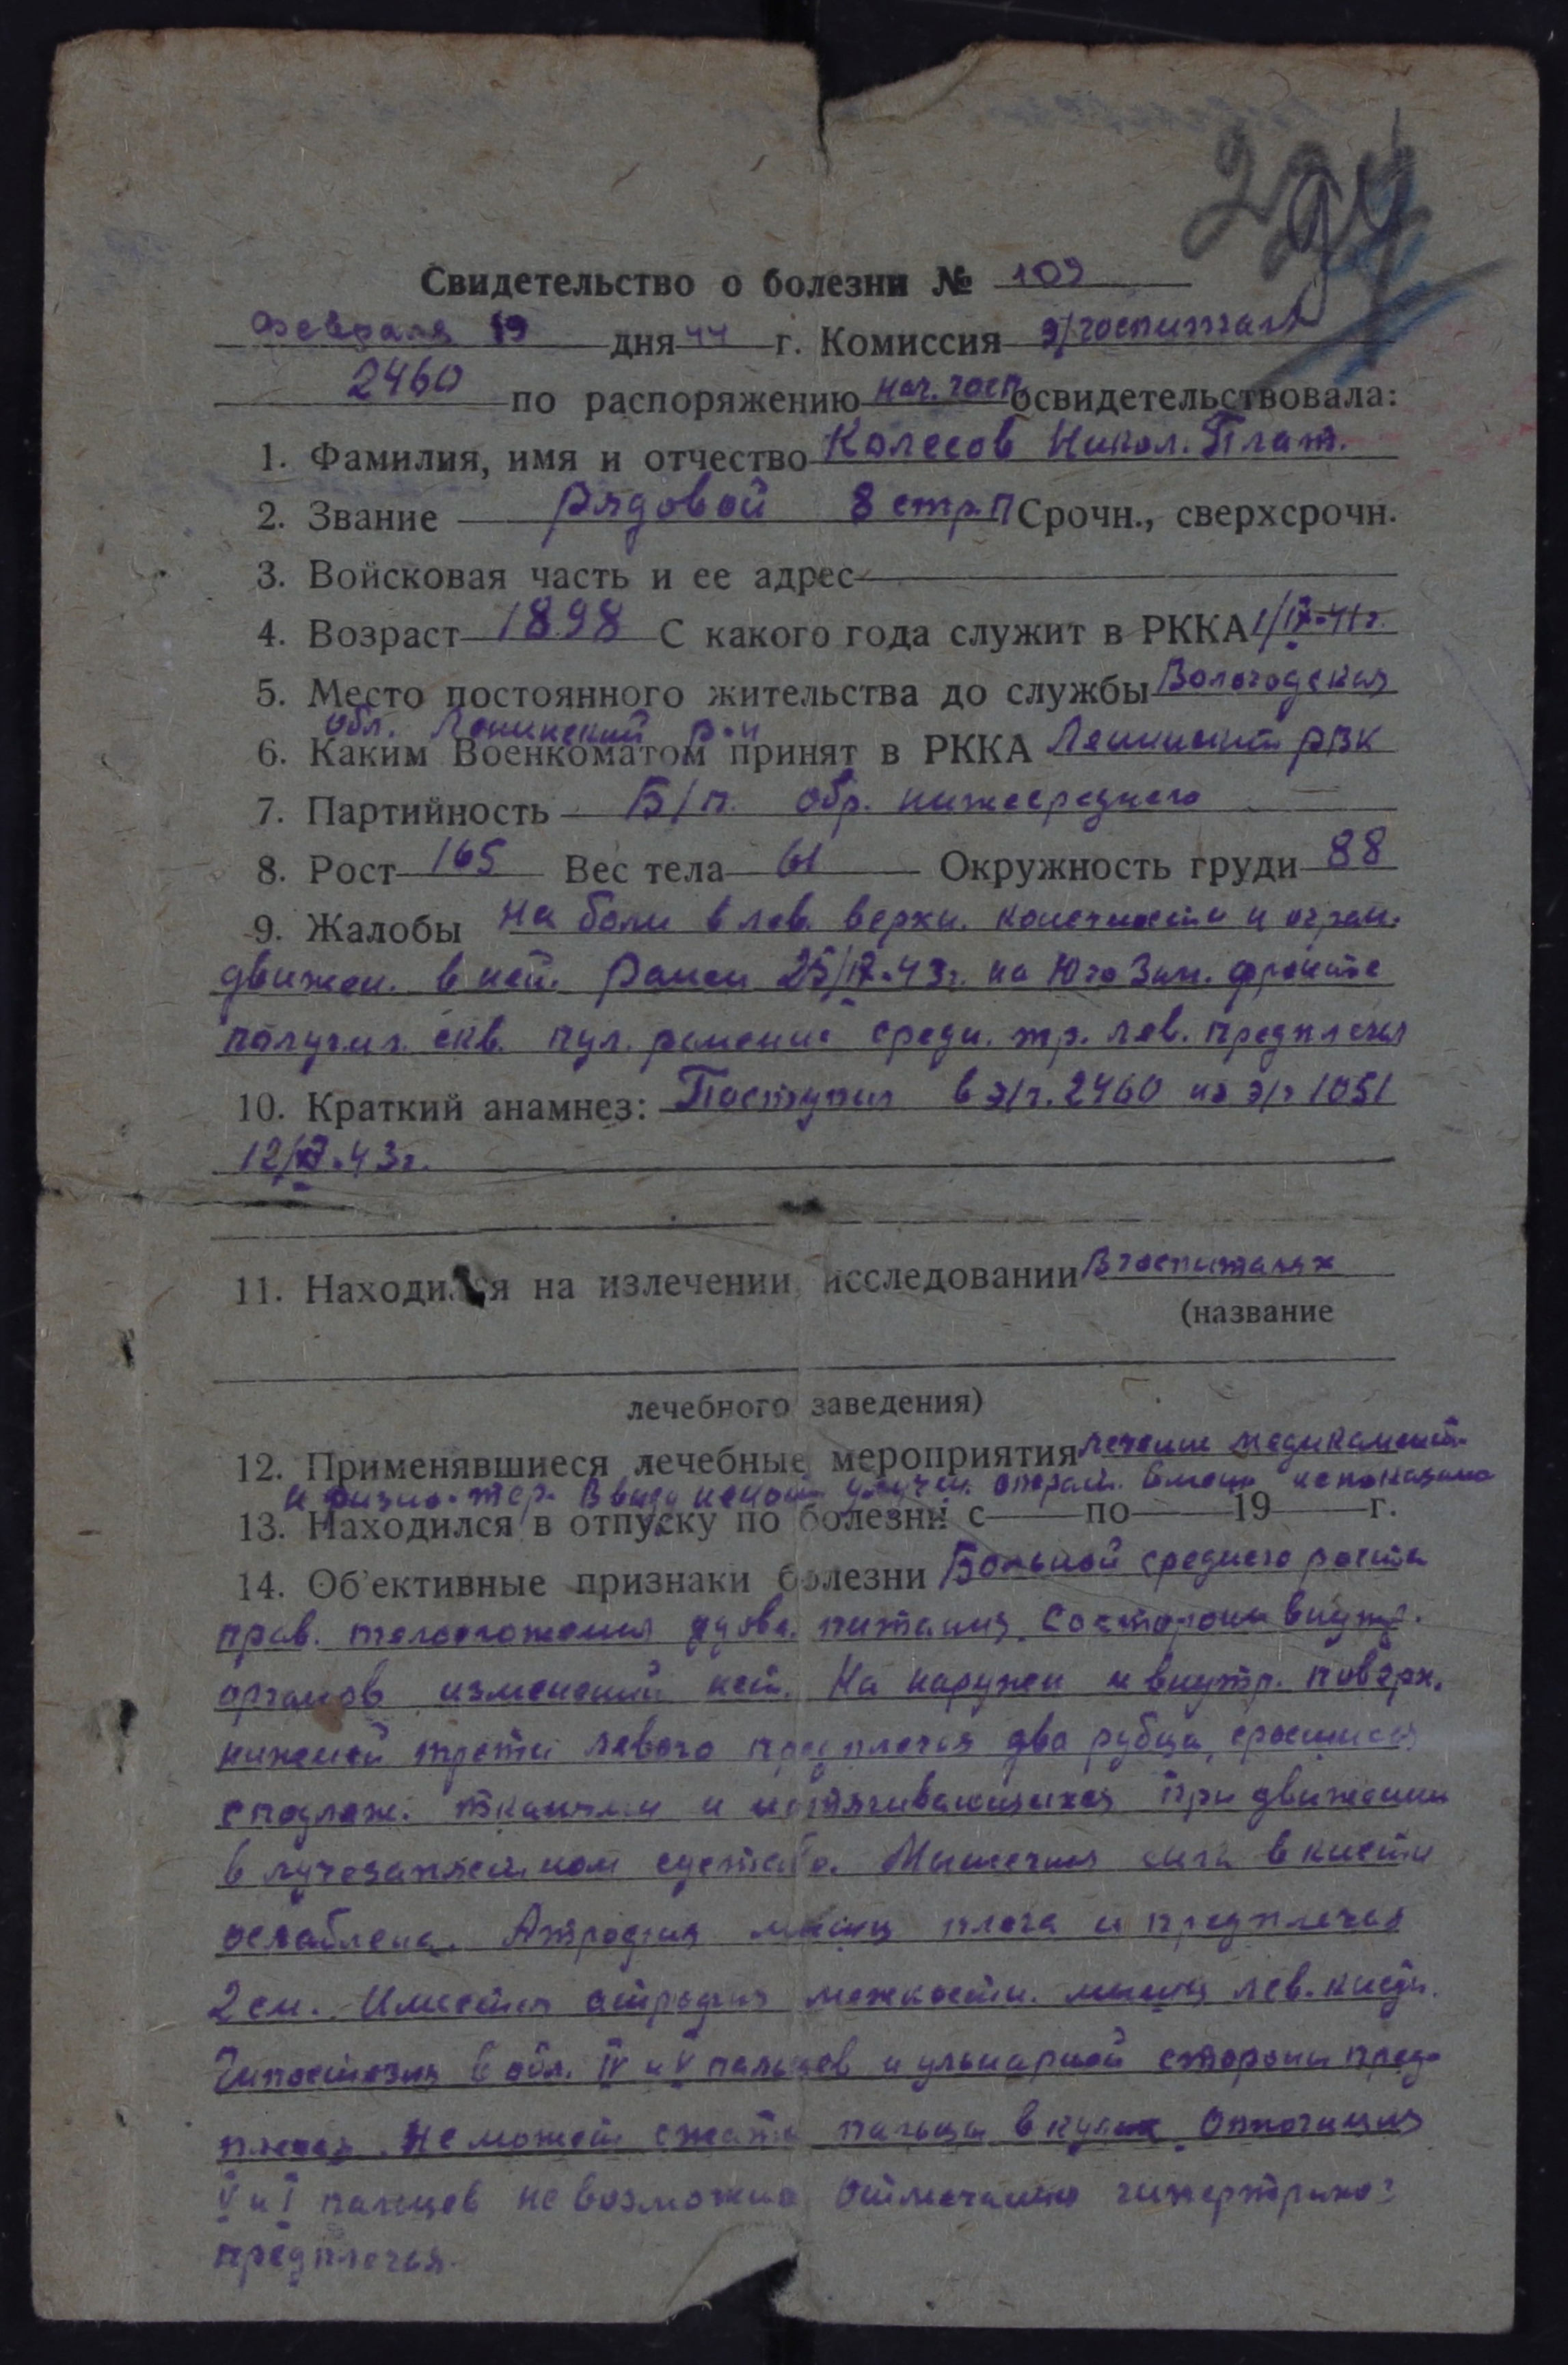 294
Свидетельство о болезни № 109
Февраля 19 дня 44 г. Комиссия э/госпиталя
2460 по распоряжению нач. госп. освидетельствовала:
1. Фамилия, имя и отчество Колесов Никол. Плат.
2. Звание рядовой 8 стр. п Срочн., сверхсрочн.
3. Войсковая часть и ее адрес
4. Возраст 1898 С какого года служит в РККА
5. Место постоянного жительства до службы Вологодская
обл. Ленинский р-н
6. Каким Военкоматом принят в РККА Ленинский РВК
7. Партийность Б/п. обр. нижесреднего
8. Рост 165 Вес тела 61 Окружность груди 88
9. Жалобы На боли в лев. верхн. конечности и огран.
движен. в ней. Ранен на Юго Зап. фронте
получил скв. пул. ранение средн. тр. лев. предплечья
10. Краткий анамнез: Поступил в э/г. 2460 из э/г 1051
43г.
11. Находился на излечении, исследовании В госпиталях
(название
лечебного заведения)
12. Применявшиеся лечебные мероприятия лечение медикамент.
и физио-тер. Ввиду операт. не показано
13. Находился в отпуску по болезни с по 19 г.
14. Об'ективные признаки болезни Больной среднего роста
прав. телосложения удовл. питания. Со стороны внутр.
органов изменений нет. На наружн и внутр. поверх.
нижней трети левого предплечья два рубца,
с подлеж. тканями и натягивающихся при движении
в лучезапястном суставе. Мышечная сила в кисти
ослаблена. Атрофия мышц плеча и предплечья
2 см. Имеется атрофия межкостн. мышц лев. кисти.
Гипостезия в обл. IV и V пальцев и ульнарной стороны пред-
плечья. Не может сжать пальцы в кулак. Оппозиция
V и I пальцев не возможна
предплечья.